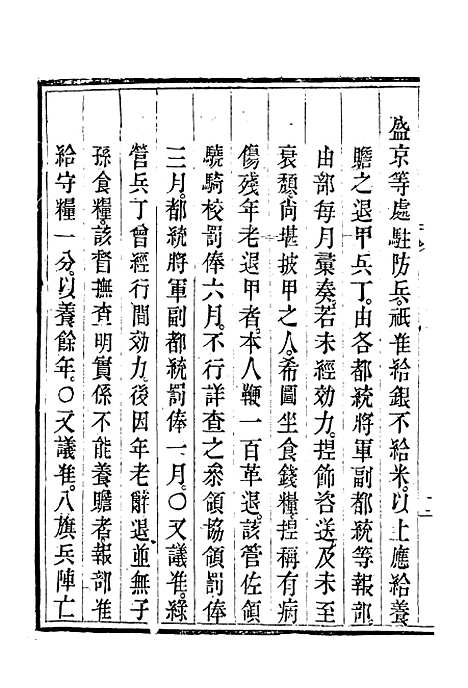 盛京等處駐防兵。祇准給銀不給米。以上應給養
贍之退甲兵丁。由各都統將軍副都統等報部。
由部每月彙奏。若未經効力。揑飾咨送。及未至
衰頹尚堪披甲之人。希圖坐食錢糧。揑稱有病
傷殘年老退甲者。本人鞭一百革退。該管佐領
驍騎校罰俸六月。不行詳查之叅領協領罰俸
三月。都統將軍副都統罰俸一月。○又議准。綠
營兵丁曾經行間効力。後因年老辭退。並無子
孫食糧。該督撫查明實係不能養贍者。報部准
給守糧一分。以養餘年。○又議准。八旗兵陣亡